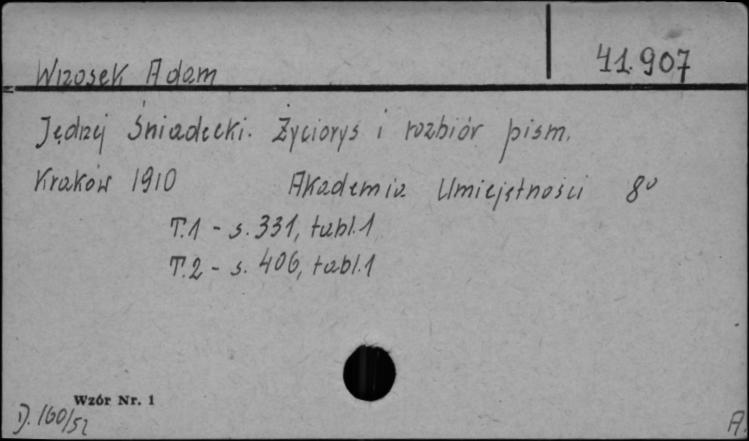 41.907
Wrzosek Adam
Jędrzej Śniadecki. Życiorys i rozbiór pism.
Kraków 1910 Akademia Umiejętności 8°
T.1 - s. 331, tabl.1
T.2 - s. 406, tabl.1
Wzór Nr. 1
D. 160/52
A.